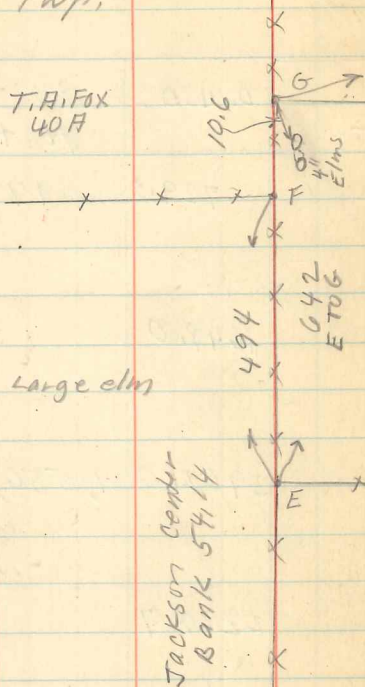 Twp.
G
T.A. Fox
40 A
10.6
4"
Elms
F
494
642
E TO G
Large elm
E
Jackson Center
Bank 54.14